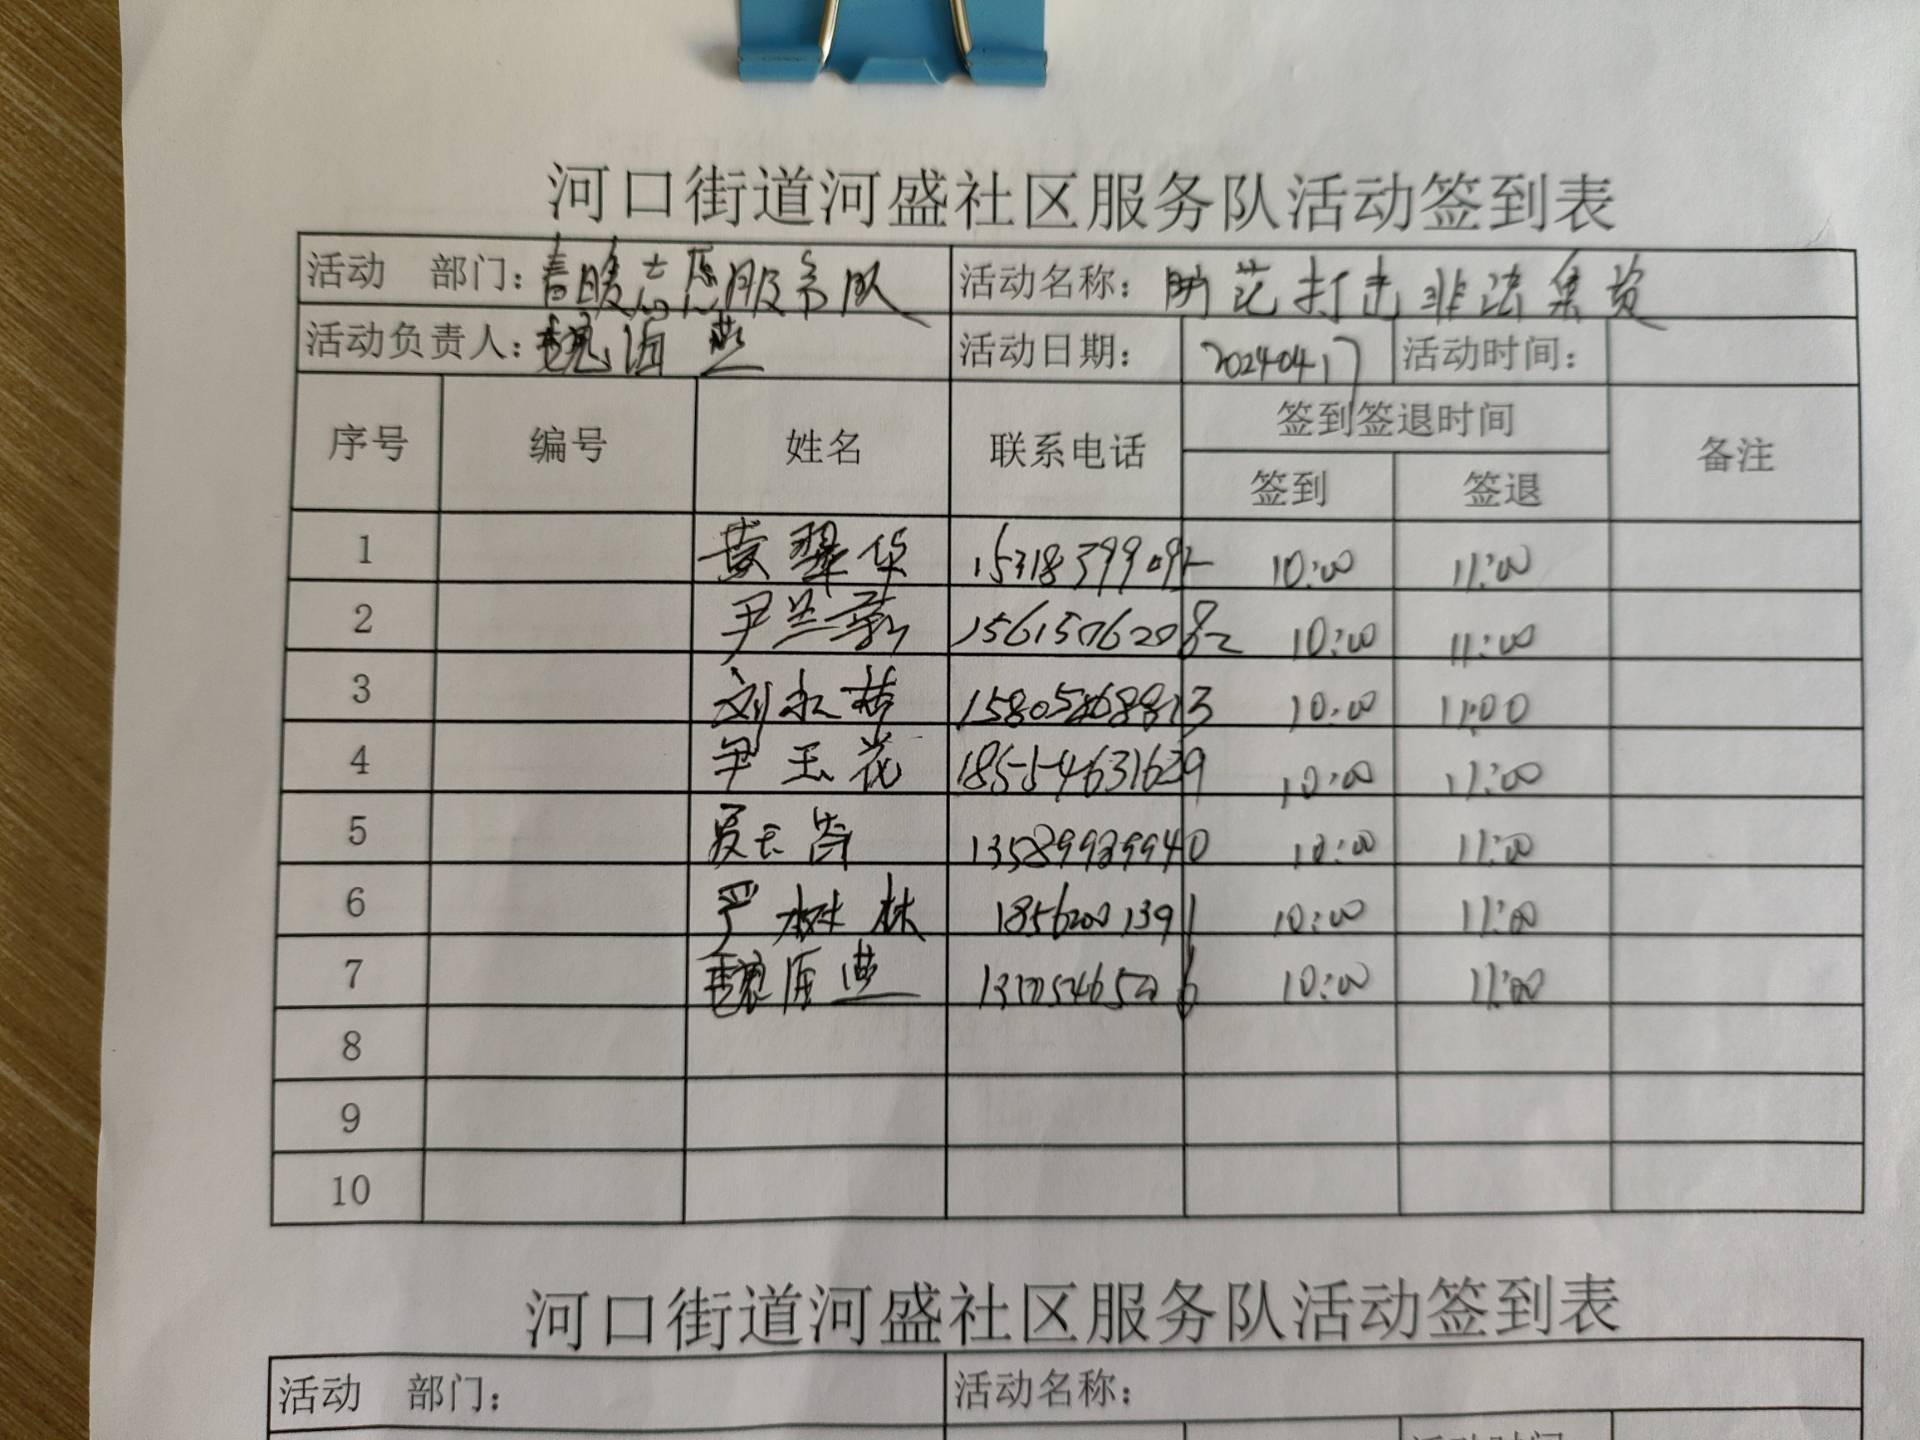 河口街道河盛社区服务队活动签到表
活动 部门：春暖志愿服务队 活动名称：防范打击非法集资
活动负责人：魏海燕 活动日期：20240417 活动时间：
序号 编号 姓名 联系电话 签到签退时间 备注
签到 签退
1 黄翠华 15318399092 10:00 11:00
2 尹兰 15615062082 10:00 11:00
3 刘 15805468813 10:00 11:00
4 尹玉花 18554631629 10:00 11:00
5 13589929940 10:00 11:00
6 严树林 18562001391 10:00 11:00
7 魏海燕 10:00 11:00
8
9
10
河口街道河盛社区服务队活动签到表
活动 部门： 活动名称：